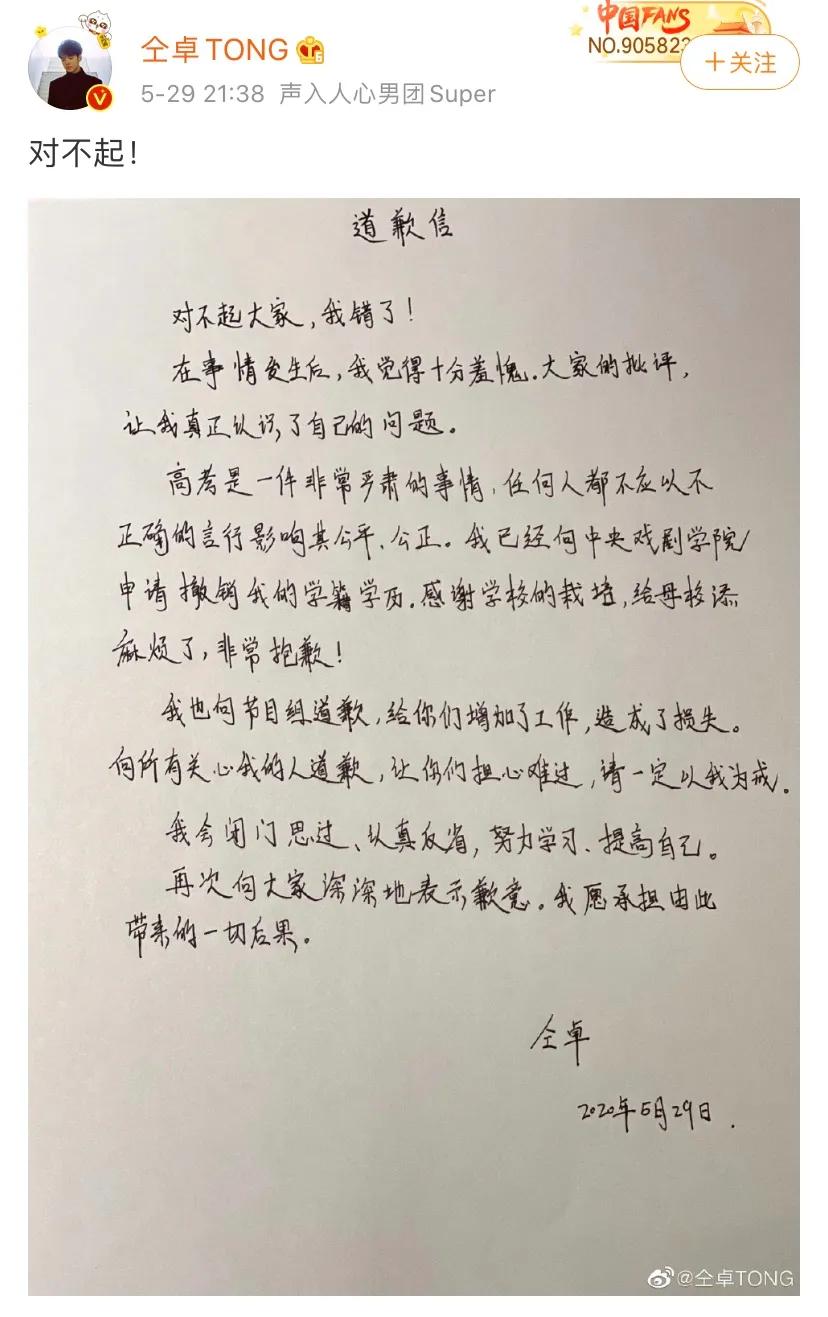 中国FANS
仝卓TONG
NO.905823
＋关注
5-29 21:38 声入人心男团Super
对不起！
道歉信
对不起大家，我错了！
在事情发生后，我觉得十分羞愧．大家的批评，
让我真正认识了自己的问题。
高考是一件非常严肃的事情，任何人都不应以不
正确的言行影响其公平、公正。我已经向中央戏剧学院
申请撤销我的学籍学历．感谢学校的栽培，给母校添
麻烦了，非常抱歉！
我也向节目组道歉，给你们增加了工作，造成了损失。
向所有关心我的人道歉，让你们担心难过，请一定以我为戒．
我会闭门思过、认真反省，努力学习、提高自己。
再次向大家深深地表示歉意。我愿承担由此
带来的一切后果。
仝卓
2020年5月29日．
@仝卓TONG